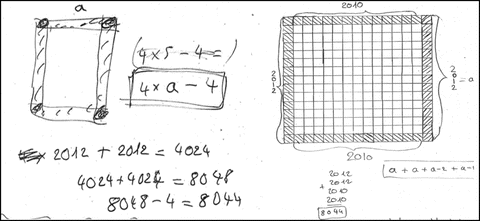 a
(4×5-4=)
4×a-4
2012 + 2012 = 4024
4024+4024 = 8048
8048-4=8044
2010
2012
2012 = a
2010
2012
+ 2012
2010
2010
8044
a + a + a-2 + a-